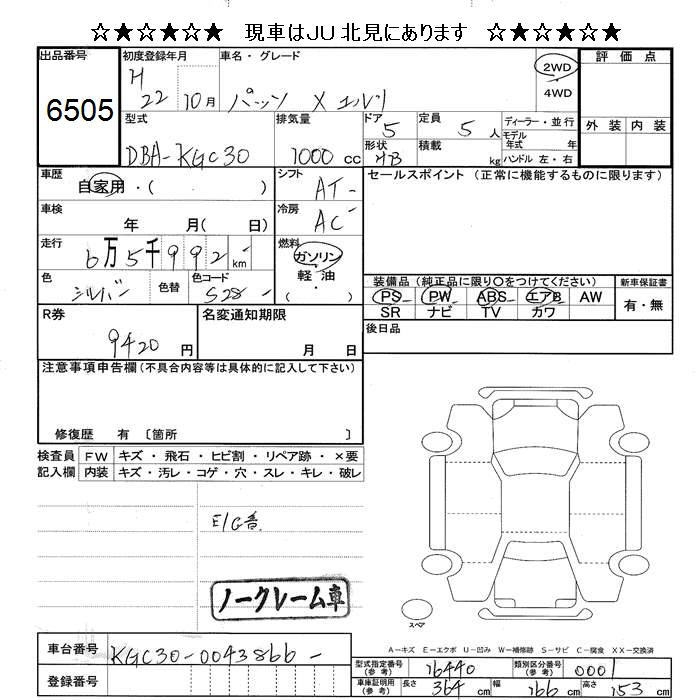 ☆★☆★☆★ 現車はJU北見にあります ☆★☆★☆★
出品番号
6505
初度登録年月
H 22 10月
車名・グレード
パッソ X エルソ
2WD
4WD
評価点
外装 内装
型式
DBA-KGC30
排気量
1000 cc
ドア
5
定員
5 人
形状
HB
積載
kg
ディーラー・並行
モデル年式 年
ハンドル 左・右
車歴
自家用・( )
シフト
AT-
セールスポイント (正常に機能するものに限ります)
車検
年 月( 日)
冷房
AC
走行
6万5千992 km
燃料
ガソリン・
軽油・
( )
色
シルバー
色替
色コード
S28 -
装備品 (純正品に限り○をつけてください)
PS PW ABS エアB AW
SR ナビ TV カワ
新車保証書
有・無
R券
9420 円
名変通知期限
月 日
後日品
注意事項申告欄(不具合内容等は具体的に記入して下さい)
修復歴 有 〔箇所 〕
検査員記入欄
FW キズ・飛石・ヒビ割・リペア跡・×要
内装 キズ・汚レ・コゲ・穴・スレ・キレ・破レ
E/G音
ノークレーム車
スペア
A-キズ E-エクボ U-凹み W-補修跡 S-サビ C-腐食 XX-交換済
車台番号
KGC30-0043866-
登録番号
型式指定番号(参考)
16440
類別区分番号(参考)
0001
車庫証明用(参考)
長さ 364 cm 幅 166 cm 高さ 153 cm